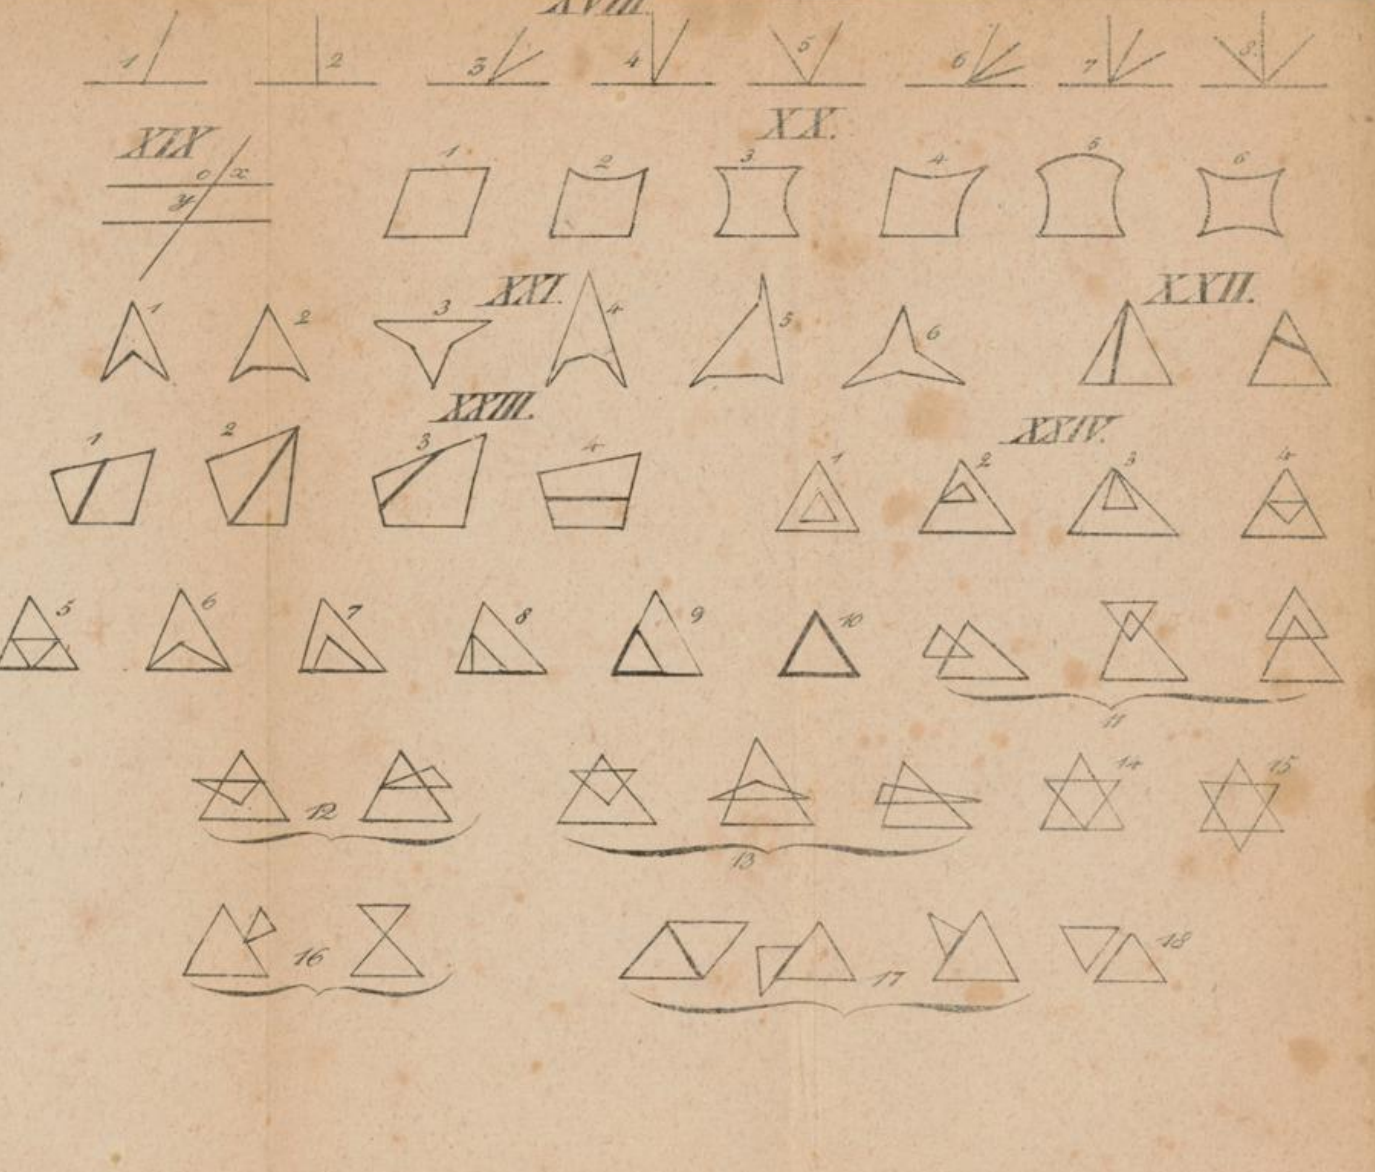 XVIII.
1 2 3 4 5 6 7 8
XIX
o x
y
XX.
1 2 3 4 5 6
XXI.
1 2 3 4 5 6
XXII.
XXIII.
1 2 3 4
XXIV.
1 2 3 4
5 6 7 8 9 10
11
12
13
14 15
16
17
18